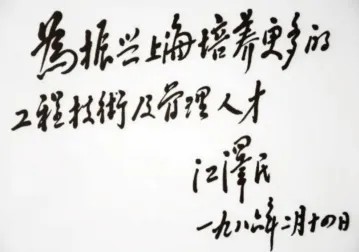 為振兴上海培养更多的
工程技術及管理人才
江澤民
一九八六年二月十四日